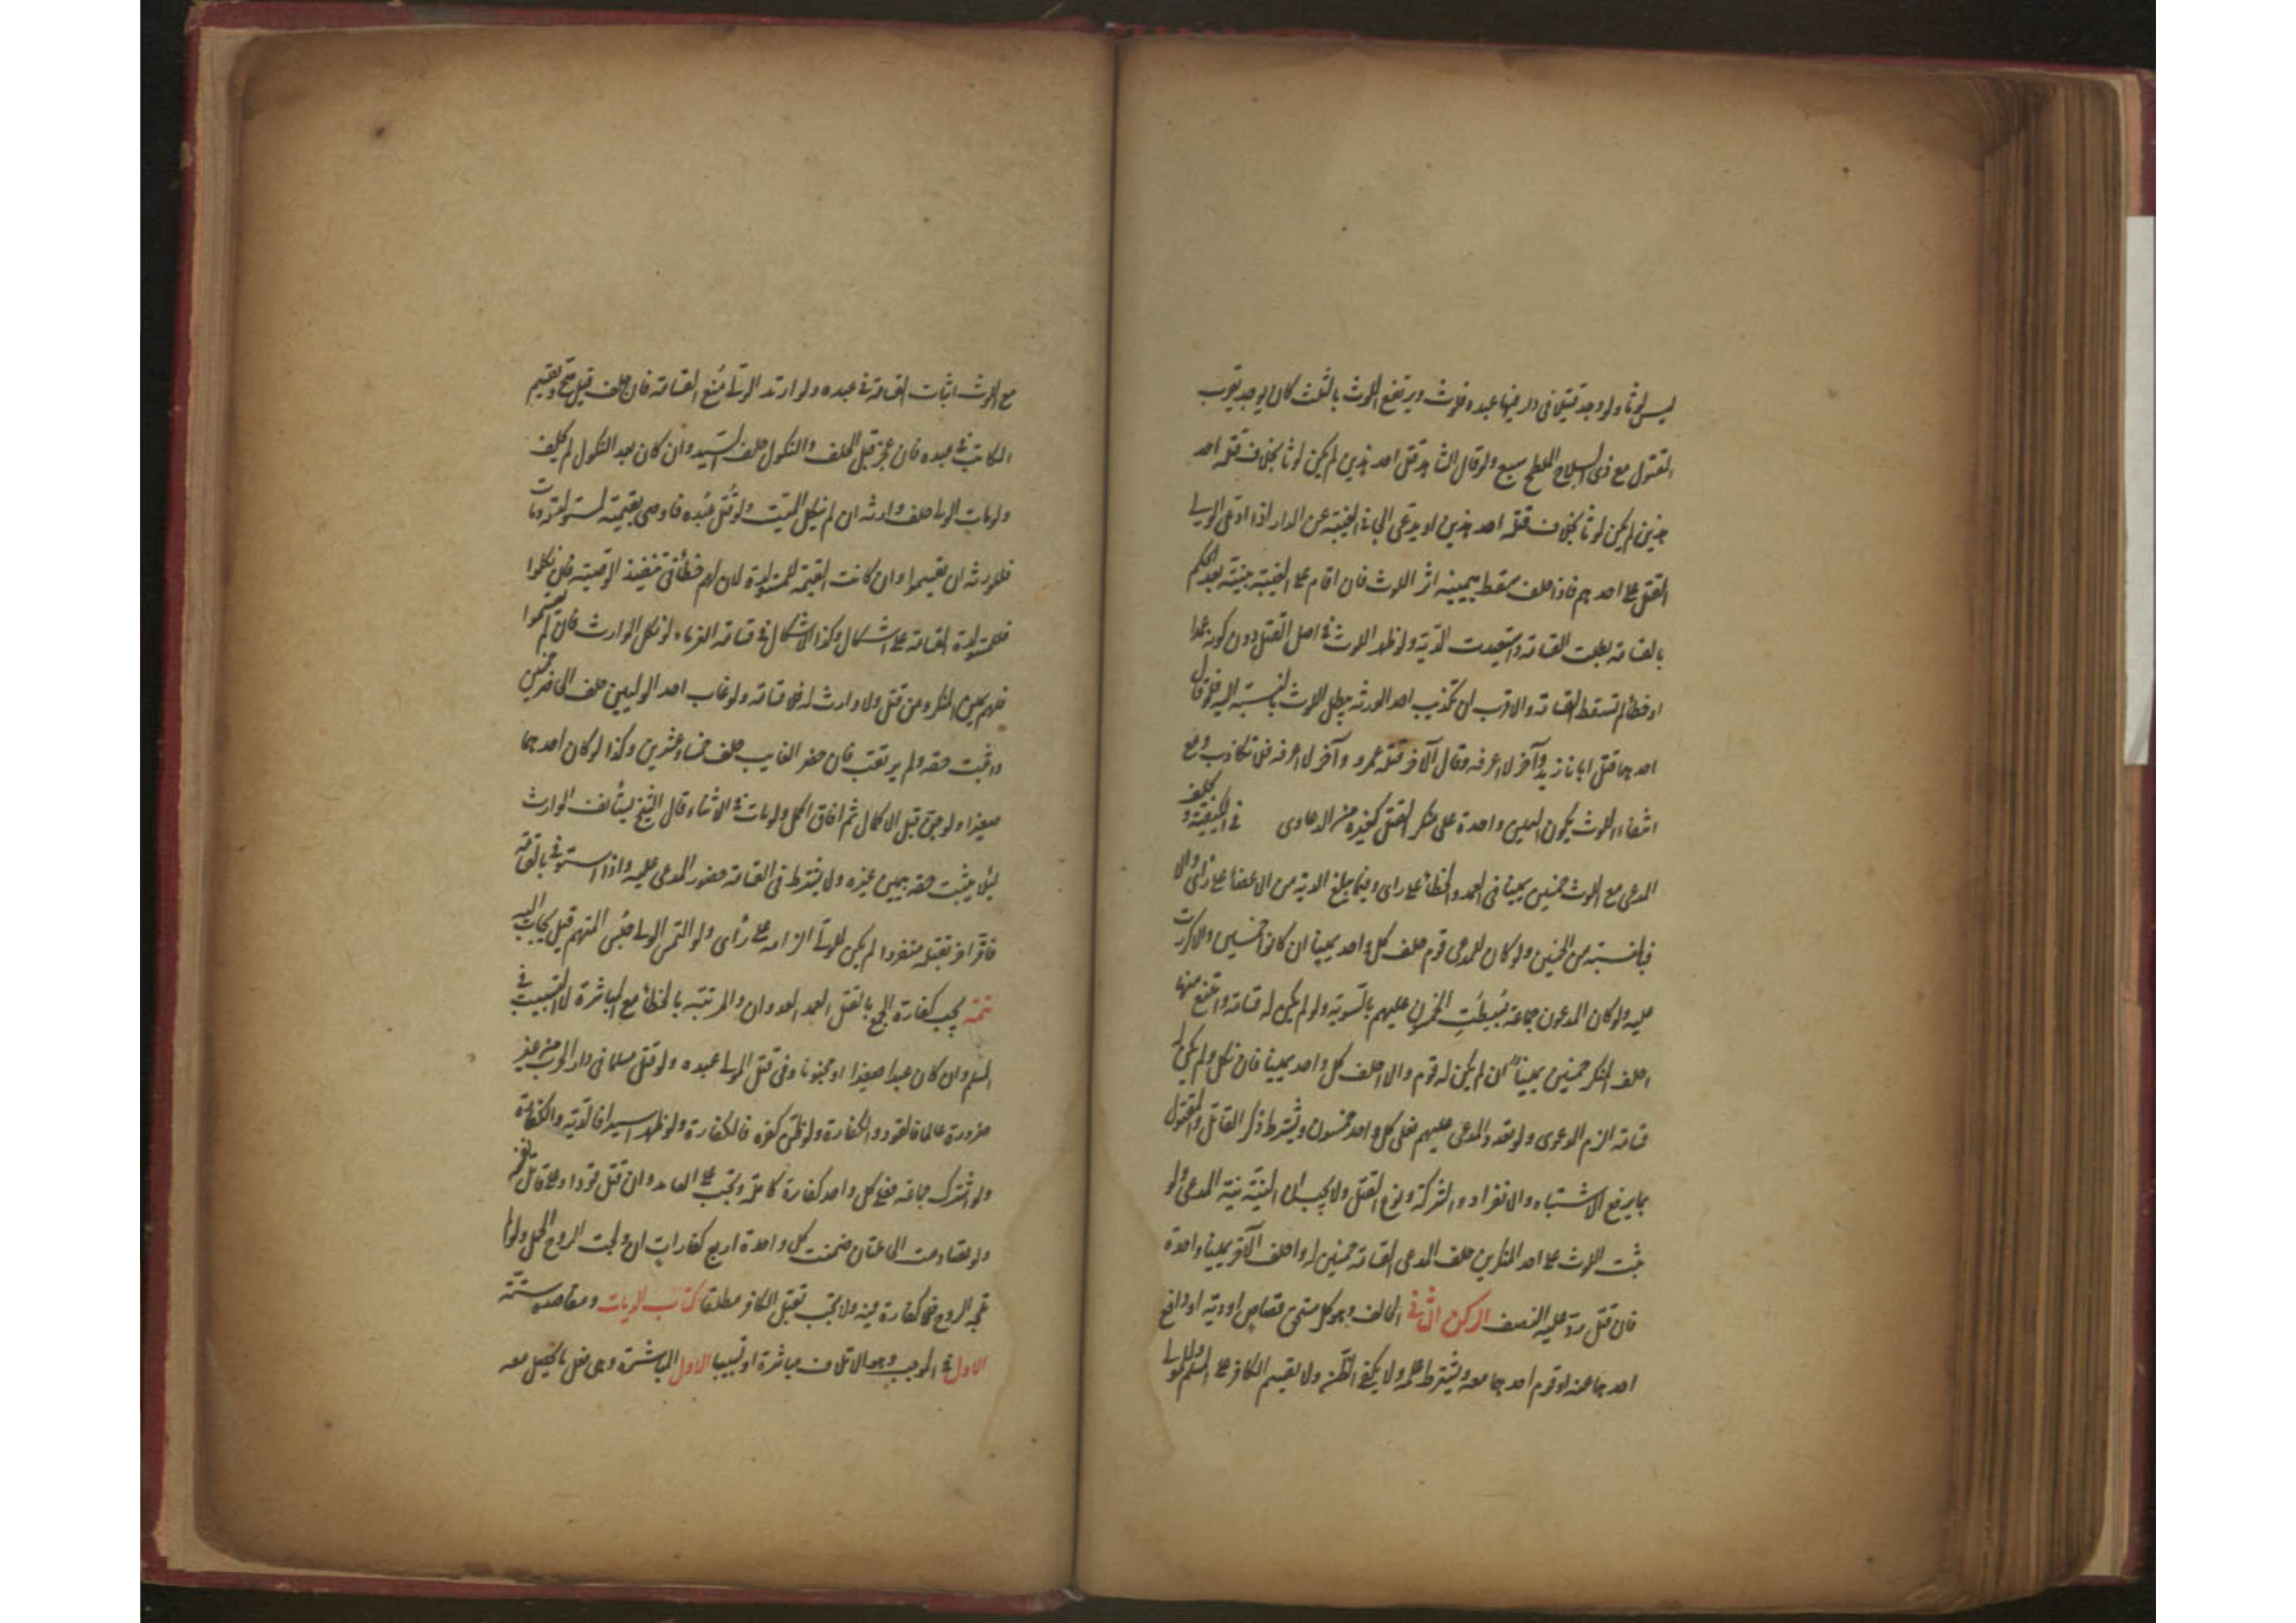 ليس لوثا ولو وجد قتيلا فى دار فيها عبده فلوث ويرتفع اللوث بالشك كان يوجد بقرب
المقتول مع ذى السلاح الملطخ سبع ولو قال الشاهد قتل احد هذين لم يكن لوثا بخلاف قتله احد
هذين لم يكن لوثا بخلاف قتله احد هذين او يدعى الجانى الغيبة عن الدار اذا ادعى الولى
القتل على احدهم فاذا حلف سقط بيمينه اثر اللوث فان اقام على الغيبة بينة بعد الحكم
بالقسامة بطلت القسامة واستعيدت الدية ولو ظهر اللوث فى اصل القتل دون كونه عمدا
او خطأ لم تسقط القسامة والاقرب ان تكذيب احد الورثة يبطل اللوث بالنسبة اليه فلو قال
احدهما قتل ابانا زيد وآخر لا اعرفه وقال الآخر قتله عمرو وآخر لا اعرفه فلا تكاذب ومع
انتفاء اللوث يكون اليمين واحدة على منكر القتل كغيره من الدعاوى فى الكيفية و يحلف
المدعى مع اللوث خمسين يمينا فى العمد والخطأ على راى وفيما يبلغ الدية من الاعضاء على رأى والا
فبالنسبة من الخمسين ولو كان للمدعى قوم حلف كل واحد يمينا ان كانوا خمسين والا كررت
عليه ولو كان المدعون جماعة بسطت الخمسون عليهم بالسوية ولو لم يكن له قسامة وامتنع منها
احلف المنكر خمسين يمينا ان لم يكن له قوم والا احلف كل واحد يمينا فان نكل ولم يكن له
قسامة الزم الدعوى ولو تعدد المدعى عليهم فعلى كل واحد خمسون ويشترط ذكر القاتل والمقتول
بما يرفع الاشتباه والانفراد والشركة ونوع القتل ولا يجب ان النية نية المدعى ولو
ثبت اللوث على احد المنكرين حلف المدعى القسامة خمسين له واحلف الآخر يمينا واحدة
فان قتل رد عليه النصف الركن الثانى الحالف وهو كل مستحق قصاص او دية او دافع
احدهما عنه او قوم احدهما معه ويشترط علمه ولا يكفى الظن ولا يقسم الكافر على المسلم وللمولى
مع اللوث اثبات القسامة فى عبده ولو ارتد الولى منع القسامة فان حلف قيل صح ويقسم
المكاتب فى عبده فان عجز قبل الحلف والنكول حلف السيد وان كان بعد النكول لم يحلف
ولو مات الولى حلف وارثه ان لم ينكل الميت ولو قتل عبده فاوصى بقيمته لمستولدته ومات
فللورثة ان يقسموا وان كانت القيمة للمستولدة لان لهم حظا فى تنفيذ الوصية فان نكلوا
فللمستولدة القسامة على اشكال وكذا الاشكال فى قسامة الغرماء لو نكل الوارث فان لم يقسموا
فلهم يمين المنكر ومن قتل ولا وارث له فلا قسامة ولو غاب احد الوليين حلف الحاضر خمسين
وثبت حقه ولم يرتقب فان حضر الغايب حلف خمسا وعشرين وكذا لو كان احدهما
صغيرا ولو جن قبل الاكمال ثم افاق اكمل ولو مات فى الاثناء قال الشيخ يستأنف الوارث
لئلا يثبت حقه بيمين غيره ولا يشترط فى القسامة حضور المدعى عليه واذا استوفى بالقسامة
فاقر آخر بقتله منفردا لم يكن للولى الزامه على رأى ولو التمس الولى حبس المتهم قيل يجاب اليه
تتمة يجب كفارة الجمع بالقتل العمد العدوان والمرتبة بالخطأ مع المباشرة لا التسبيب فى
المسلم وان كان عبدا صغيرا او مجنونا وفى قتل المولى عبده ولو قتل مسلما فى دار الحرب من غير
ضرورة عالما فالقود والكفارة ولو ظن كفره فالكفارة ولو ظهر اسيرا فالدية والكفارة
ولو اشترك جماعة فعلى كل واحد كفارة كاملة وتجب على العامد وان قتل قودا وعلى قاتل نفسه
ولو تصادمت الحاملتان ضمنت كل واحدة اربع كفارات ان ولجت الروح الحمل ولو لم
تلجه الروح فلا كفارة فيه ولا تجب بقتل الكافر مطلقا كتاب الديات ومقاصده ستة
الاول فى الموجب وهو الاتلاف مباشرة او تسبيبا الاول المباشرة وهى فعل ما يحصل معه